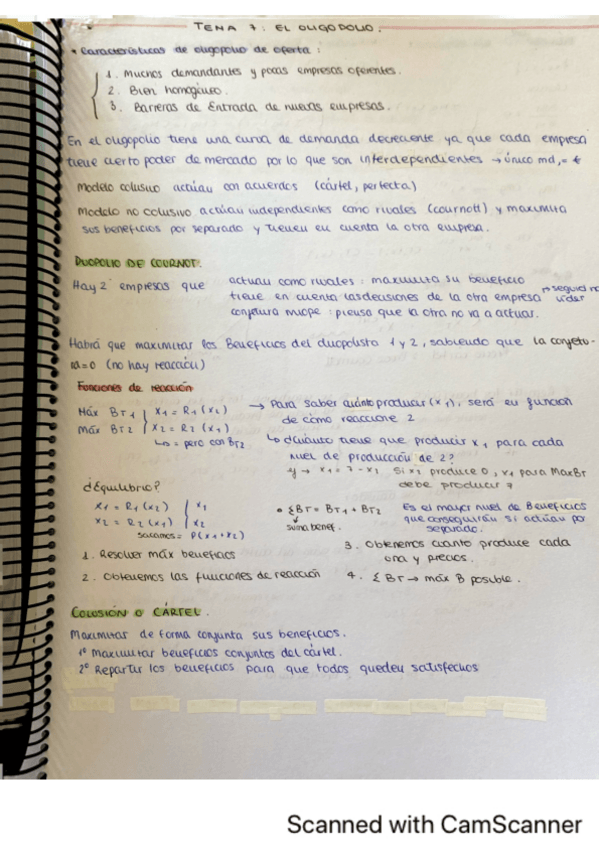 TEMA 7: EL OLIGOPOLIO.
• Características de oligopolio de oferta:
1. Muchos demandantes y pocas empresas oferentes.
2. Bien homogéneo.
3. Barreras de Entrada de nuevas empresas.
En el oligopolio tiene una curva de demanda decreciente ya que cada empresa
tiene cierto poder de mercado por lo que son interdependientes → único md,=
Modelo colusivo actúan con acuerdos (cártel, perfecta)
Modelo no colusivo actúan independientes como rivales (cournott) y maximiza
sus beneficios por separado y tienen en cuenta la otra empresa.
DUOPOLIO DE COURNOT.
Hay 2 empresas que
actúan como rivales: maximiza su beneficio
tiene en cuenta las decisiones de la otra empresa → seguid no lider
conjetura miope: piensa que la otra no va a actuar.
Habrá que maximizar los Beneficios del duopolista 1 y 2, sabiendo que la conjetu-
ra=0 (no hay reacción)
Funciones de reacción
Máx BT1 | X1 = R1 (X2)
Máx BT2 | X2 = R2 (X1)
↳ = pero con BT2
→ Para saber cuánto producir (X1), será en función
de cómo reaccione 2
↳ ¿Cuánto tiene que producir X1 para cada
nivel de producción de 2?
ej → X1 = 7 - X2 Si X2 produce 0, X1 para MaxBT
debe producir 7
¿Equilibrio?
X1 = R1 (X2) | X1
X2 = R2 (X1) | X2
sacamos = P(X1+X2)
• ΣBT = BT1 + BT2
suma benef.
Es el mayor nivel de Beneficios
que conseguirán si actúan por
separado.
1. Resolver máx beneficios
2. Obtenemos las funciones de reacción
3. Obtenemos cuanto produce cada
una y precios.
4. ΣBT → máx B posible.
COLUSIÓN O CÁRTEL.
Maximizar de forma conjunta sus beneficios.
1º Maximizar beneficios conjuntos del cártel.
2º Repartir los beneficios para que todos queden satisfechos
Scanned with CamScanner